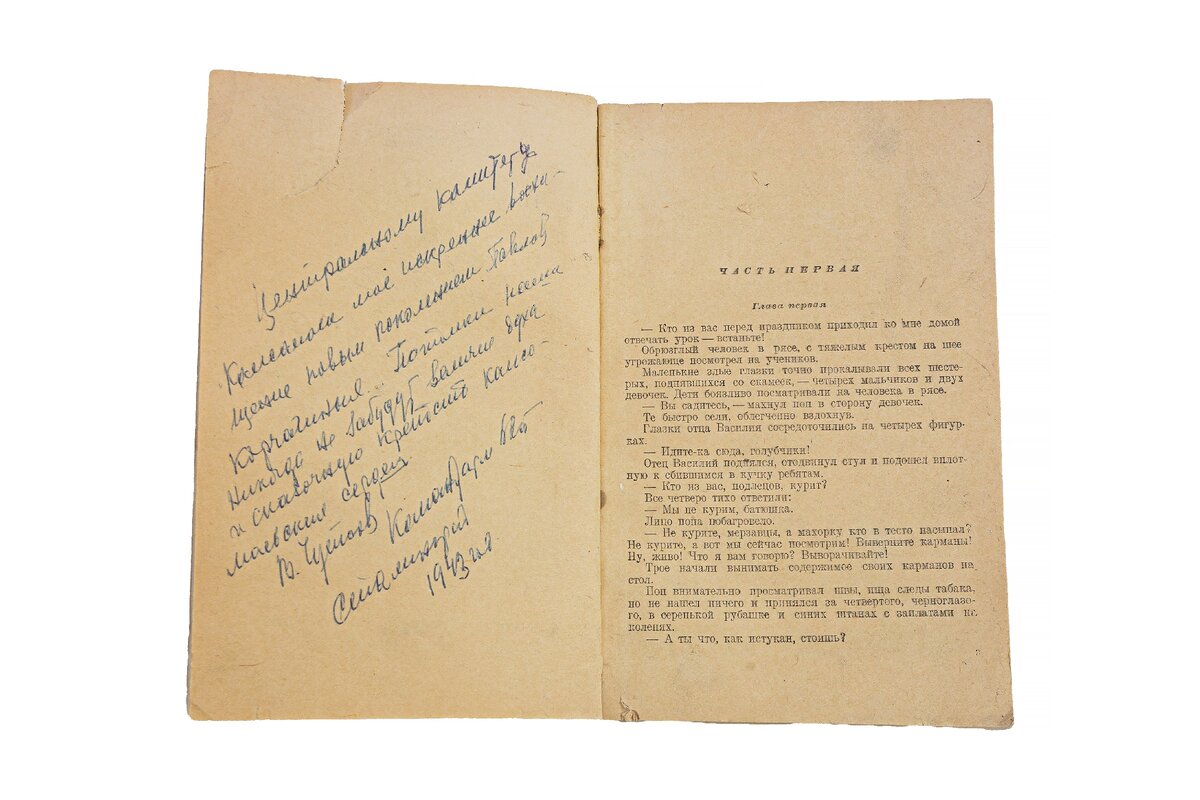 Центральному комитету
Комсомола моё искреннее восхи-
щение новым поколением Павлов
Корчагиных. Потомки наши
никогда не забудут величие духа
и сказочную крепость комсо-
мольских сердец.
В. Чуйков Командарм 62й
Сталинград
1943 год
ЧАСТЬ ПЕРВАЯ
Глава первая
— Кто из вас перед праздником приходил ко мне домой
отвечать урок — встаньте!
Обрюзглый человек в рясе, с тяжелым крестом на шее
угрожающе посмотрел на учеников.
Маленькие злые глазки точно прокалывали всех шесте-
рых, поднявшихся со скамеек, — четырех мальчиков и двух
девочек. Дети боязливо посматривали на человека в рясе.
— Вы садитесь, — махнул поп в сторону девочек.
Те быстро сели, облегченно вздохнув.
Глазки отца Василия сосредоточились на четырех фигур-
ках.
— Идите-ка сюда, голубчики!
Отец Василий поднялся, отодвинул стул и подошел вплот-
ную к сбившимся в кучку ребятам.
— Кто из вас, подлецов, курит?
Все четверо тихо ответили:
— Мы не курим, батюшка.
Лицо попа побагровело.
— Не курите, мерзавцы, а махорку кто в тесто насыпал?
Не курите, а вот мы сейчас посмотрим! Выверните карманы!
Ну, живо! Что я вам говорю? Выворачивайте!
Трое начали вынимать содержимое своих карманов на
стол.
Поп внимательно просматривал швы, ища следы табака,
но не нашел ничего и принялся за четвертого, черноглазо-
го, в серенькой рубашке и синих штанах с заплатами на
коленях.
— А ты что, как истукан, стоишь?